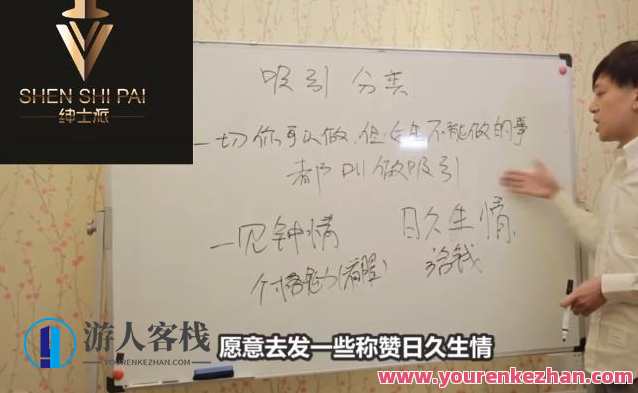 SHEN SHI PAI
绅士派
吸引 分类
一切你可以做,但女生不能做的事
都叫做吸引
一见钟情 日久生情
给钱
游人客栈
YOURENKEZHAN.COM
愿意去发一些称赞日久生情
www.yourenkezhan.com